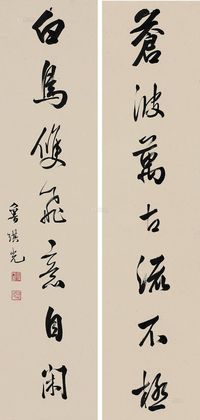 蒼波萬古流不極
白鳥雙飛意自闲
魯琪光